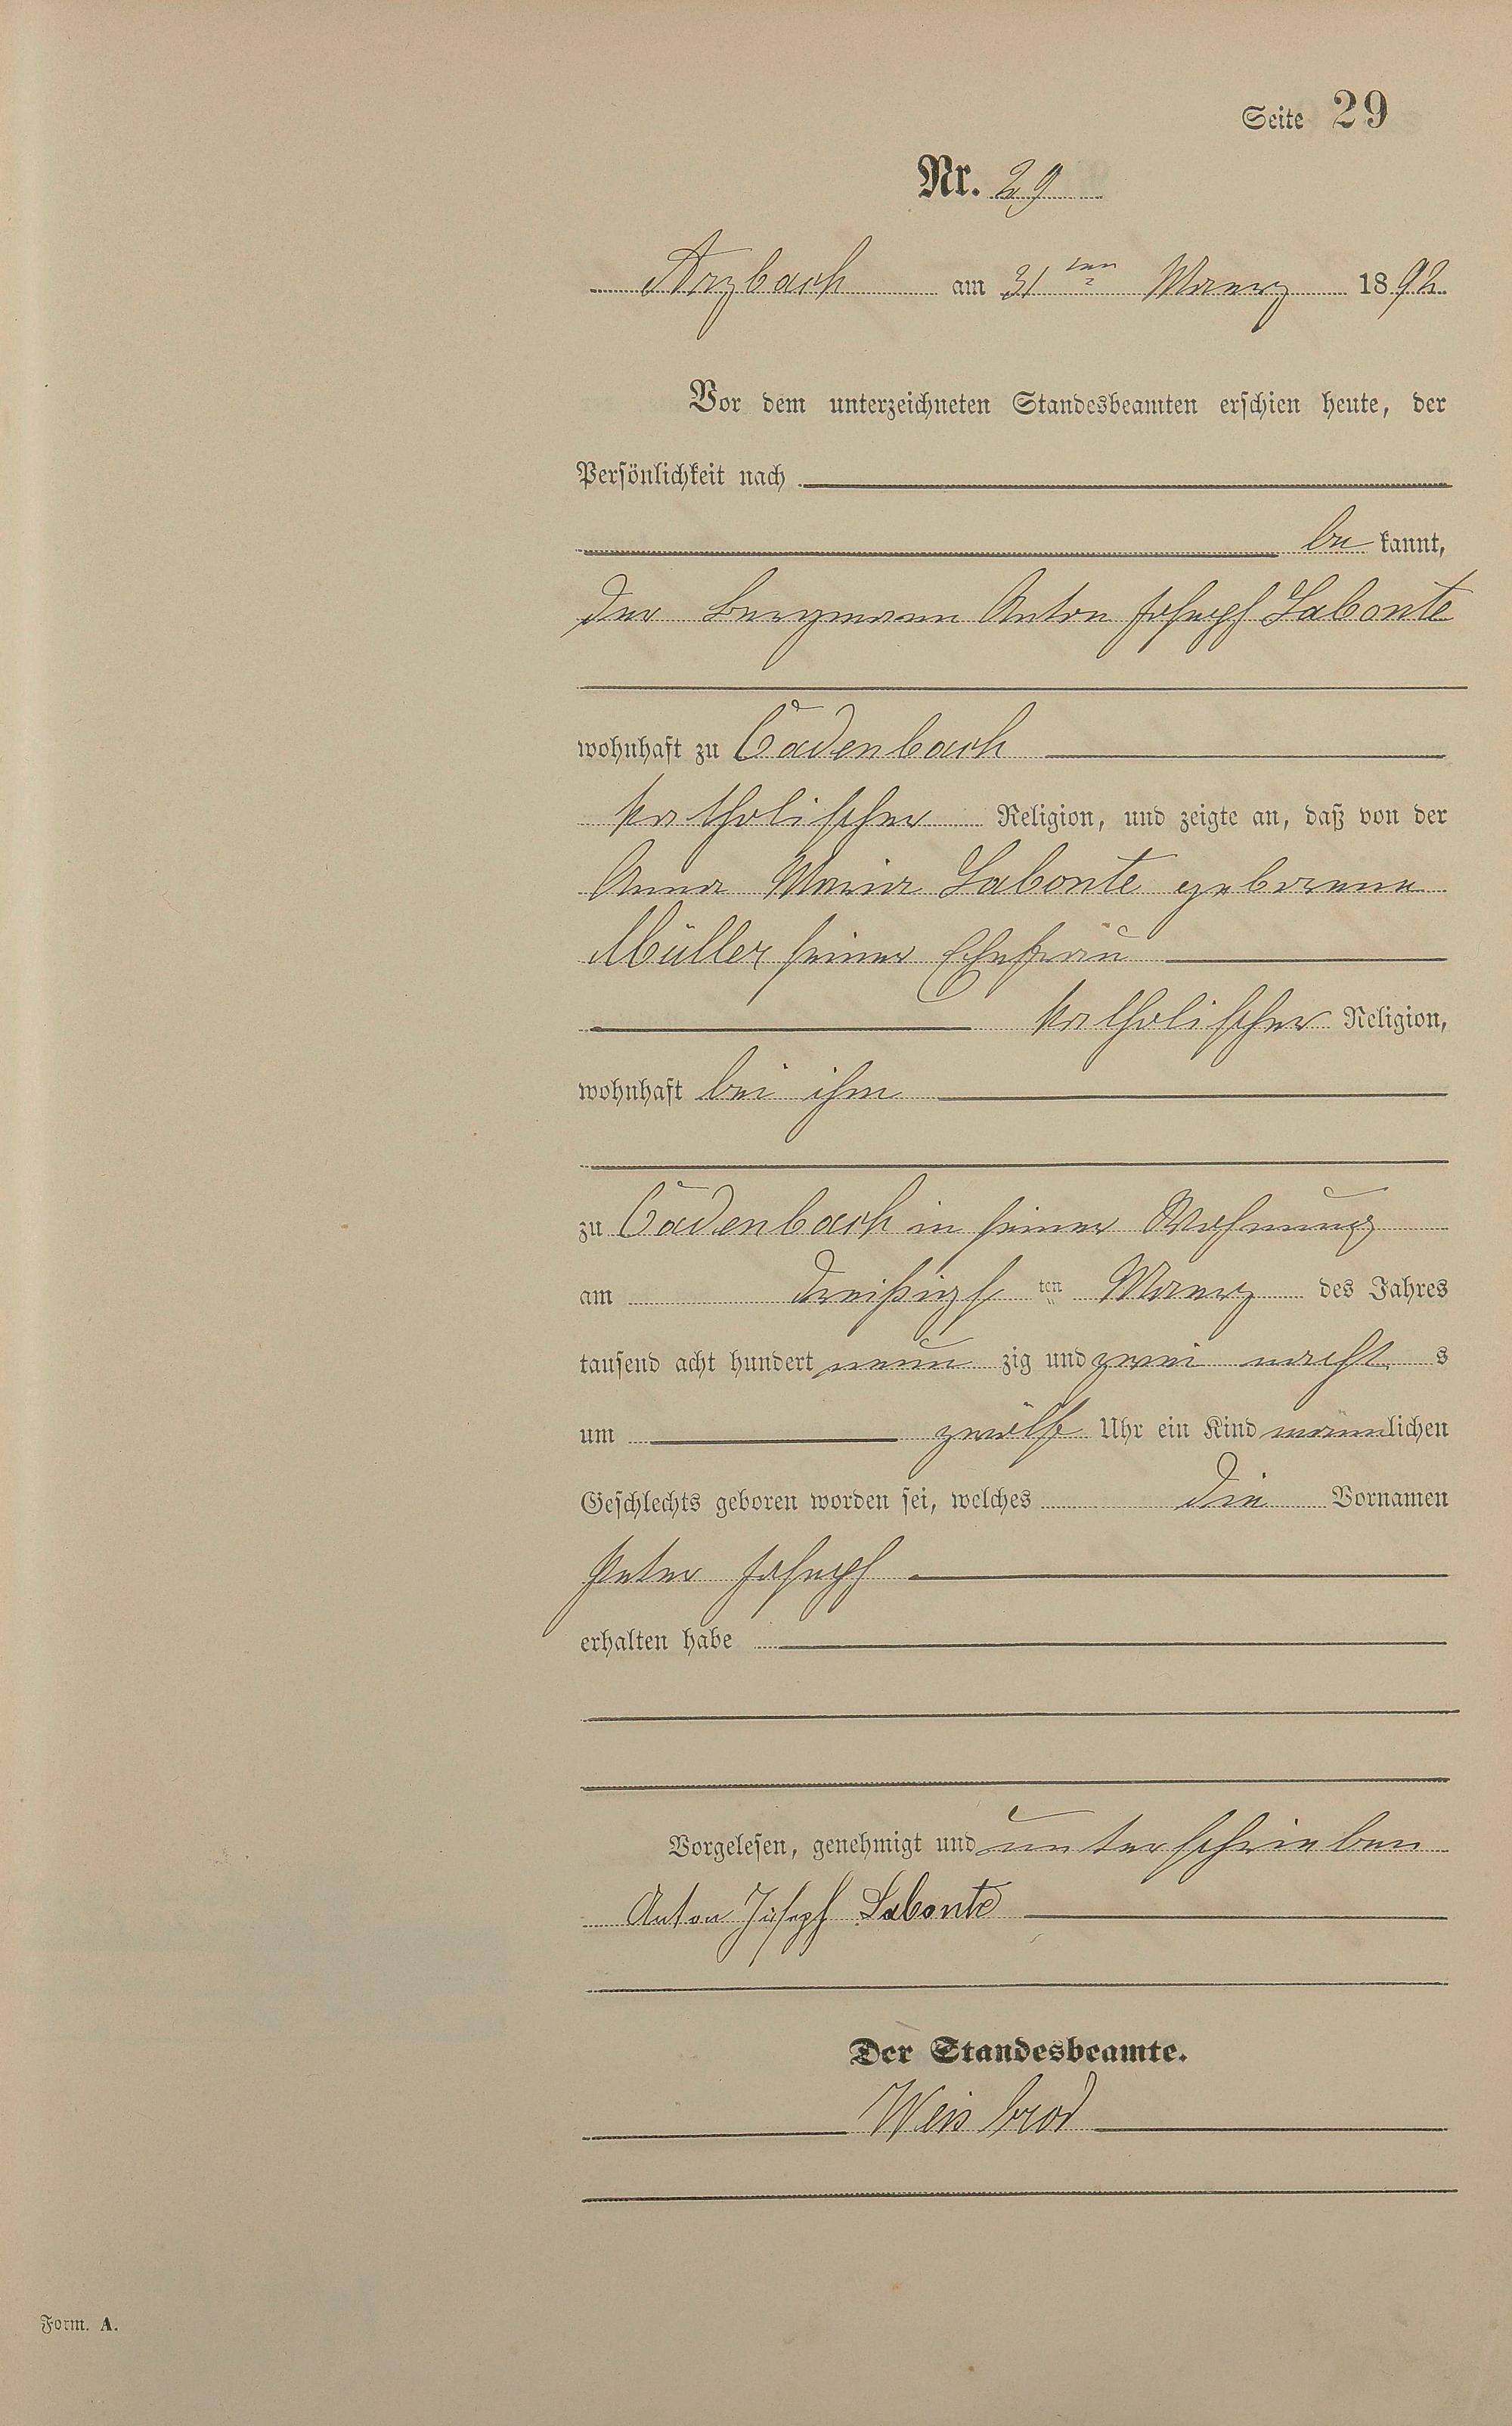 Seite 29
Nr. 29
Arzbach am 31ten Maerz 1892
Vor dem unterzeichneten Standesbeamten erschien heute, der
Persönlichkeit nach
be kannt,
der Bergmann Anton Joseph Labonte
wohnhaft zu Cadenbach
katholischer Religion, und zeigte an, daß von der
Anna Maria Labonte geborene
Müller seiner Ehefrau
katholischer Religion,
wohnhaft bei ihm
zu Cadenbach in seiner Wohnung
am dreißigsten Maerz des Jahres
tausend acht hundert neun zig und zwei nachts
um zwölf Uhr ein Kind männlichen
Geschlechts geboren worden sei, welches die Vornamen
Peter Joseph
erhalten habe
Vorgelesen, genehmigt und unterschrieben
Anton Joseph Labonte
Der Standesbeamte.
Weisbrod
Form. A.